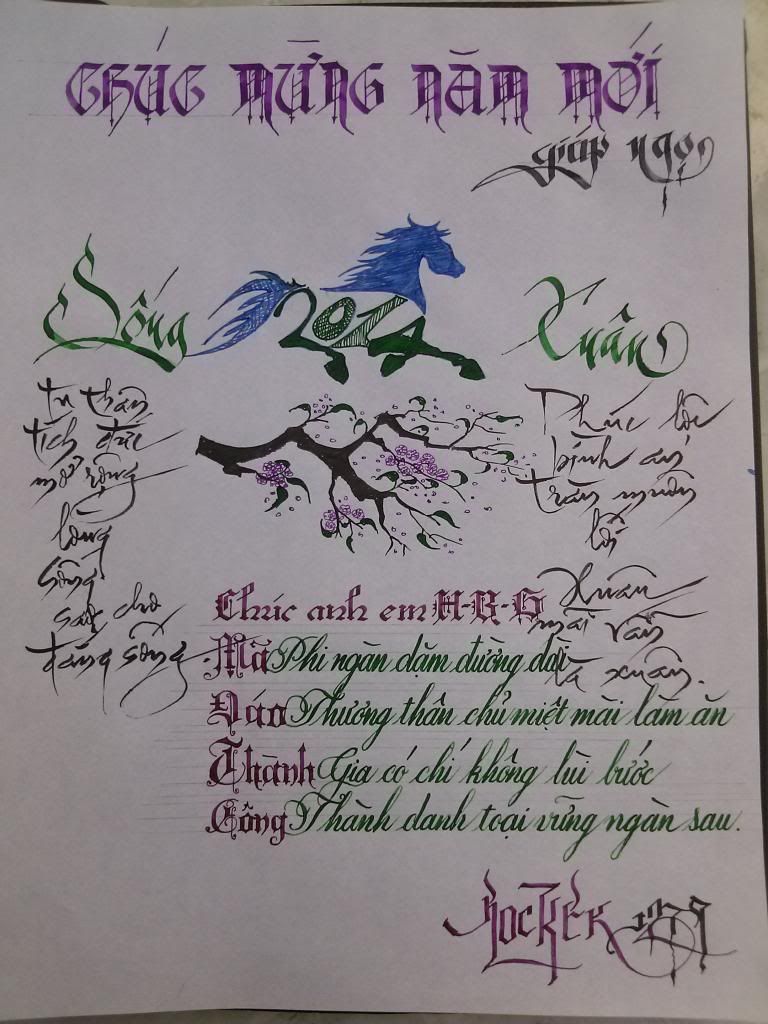 Chúc mừng năm mới
giáp ngọ
Sống
2014
Xuân
tu thân
tích đức
mở rộng
lòng
Sống
sao cho
đáng sống
Phúc lộc
bình an
tràn muôn
lối
Xuân
mãi vẫn
là xuân.
Chúc anh em H-R-G
Mã Phi ngàn dặm đường dài
Đáo Thương thân chủ miệt mài làm ăn
Thành Gia có chí không lùi bước
Công Thành danh toại vững ngàn sau.
Rocker 1979